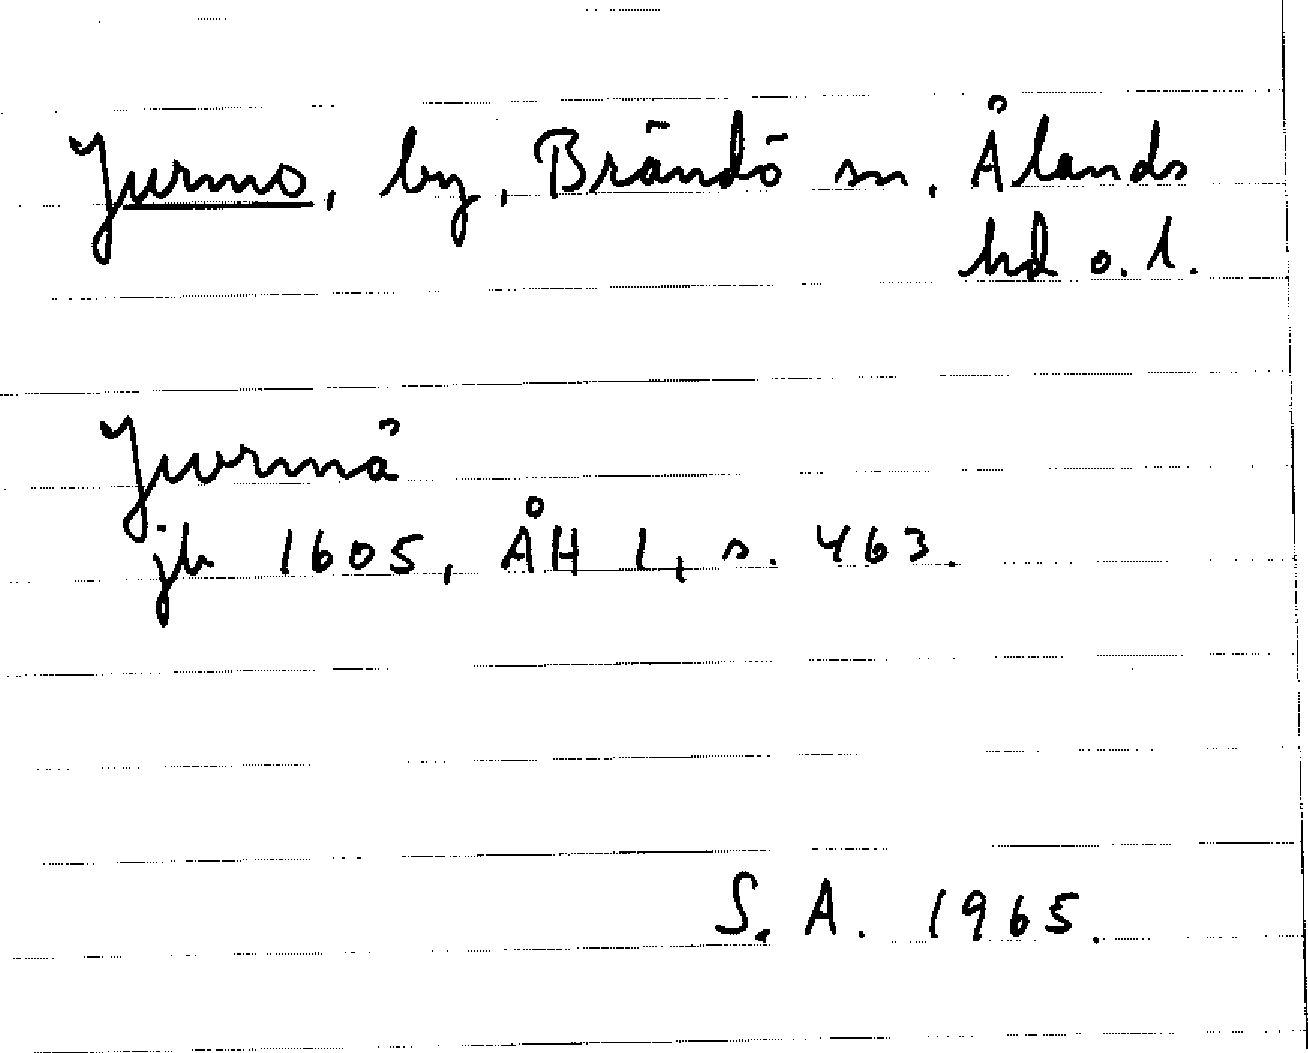 Jurmo, by, Brändö sn, Ålands
hd o. l.
Jurmå
jb 1605, ÅH 1, s. 463.
S. A. 1965.